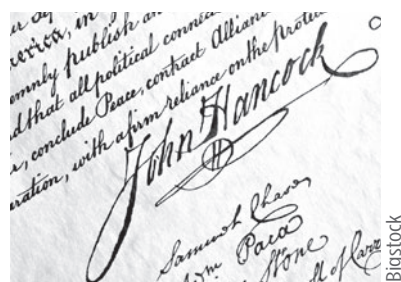 in
emnly publish an
d that all political connec
conclude Peace, contract Allian
ration, with a firm reliance on the protec
John Hancock
Samuel Chase
Wm. Paca
Stone
ll of Carr
Bigstock